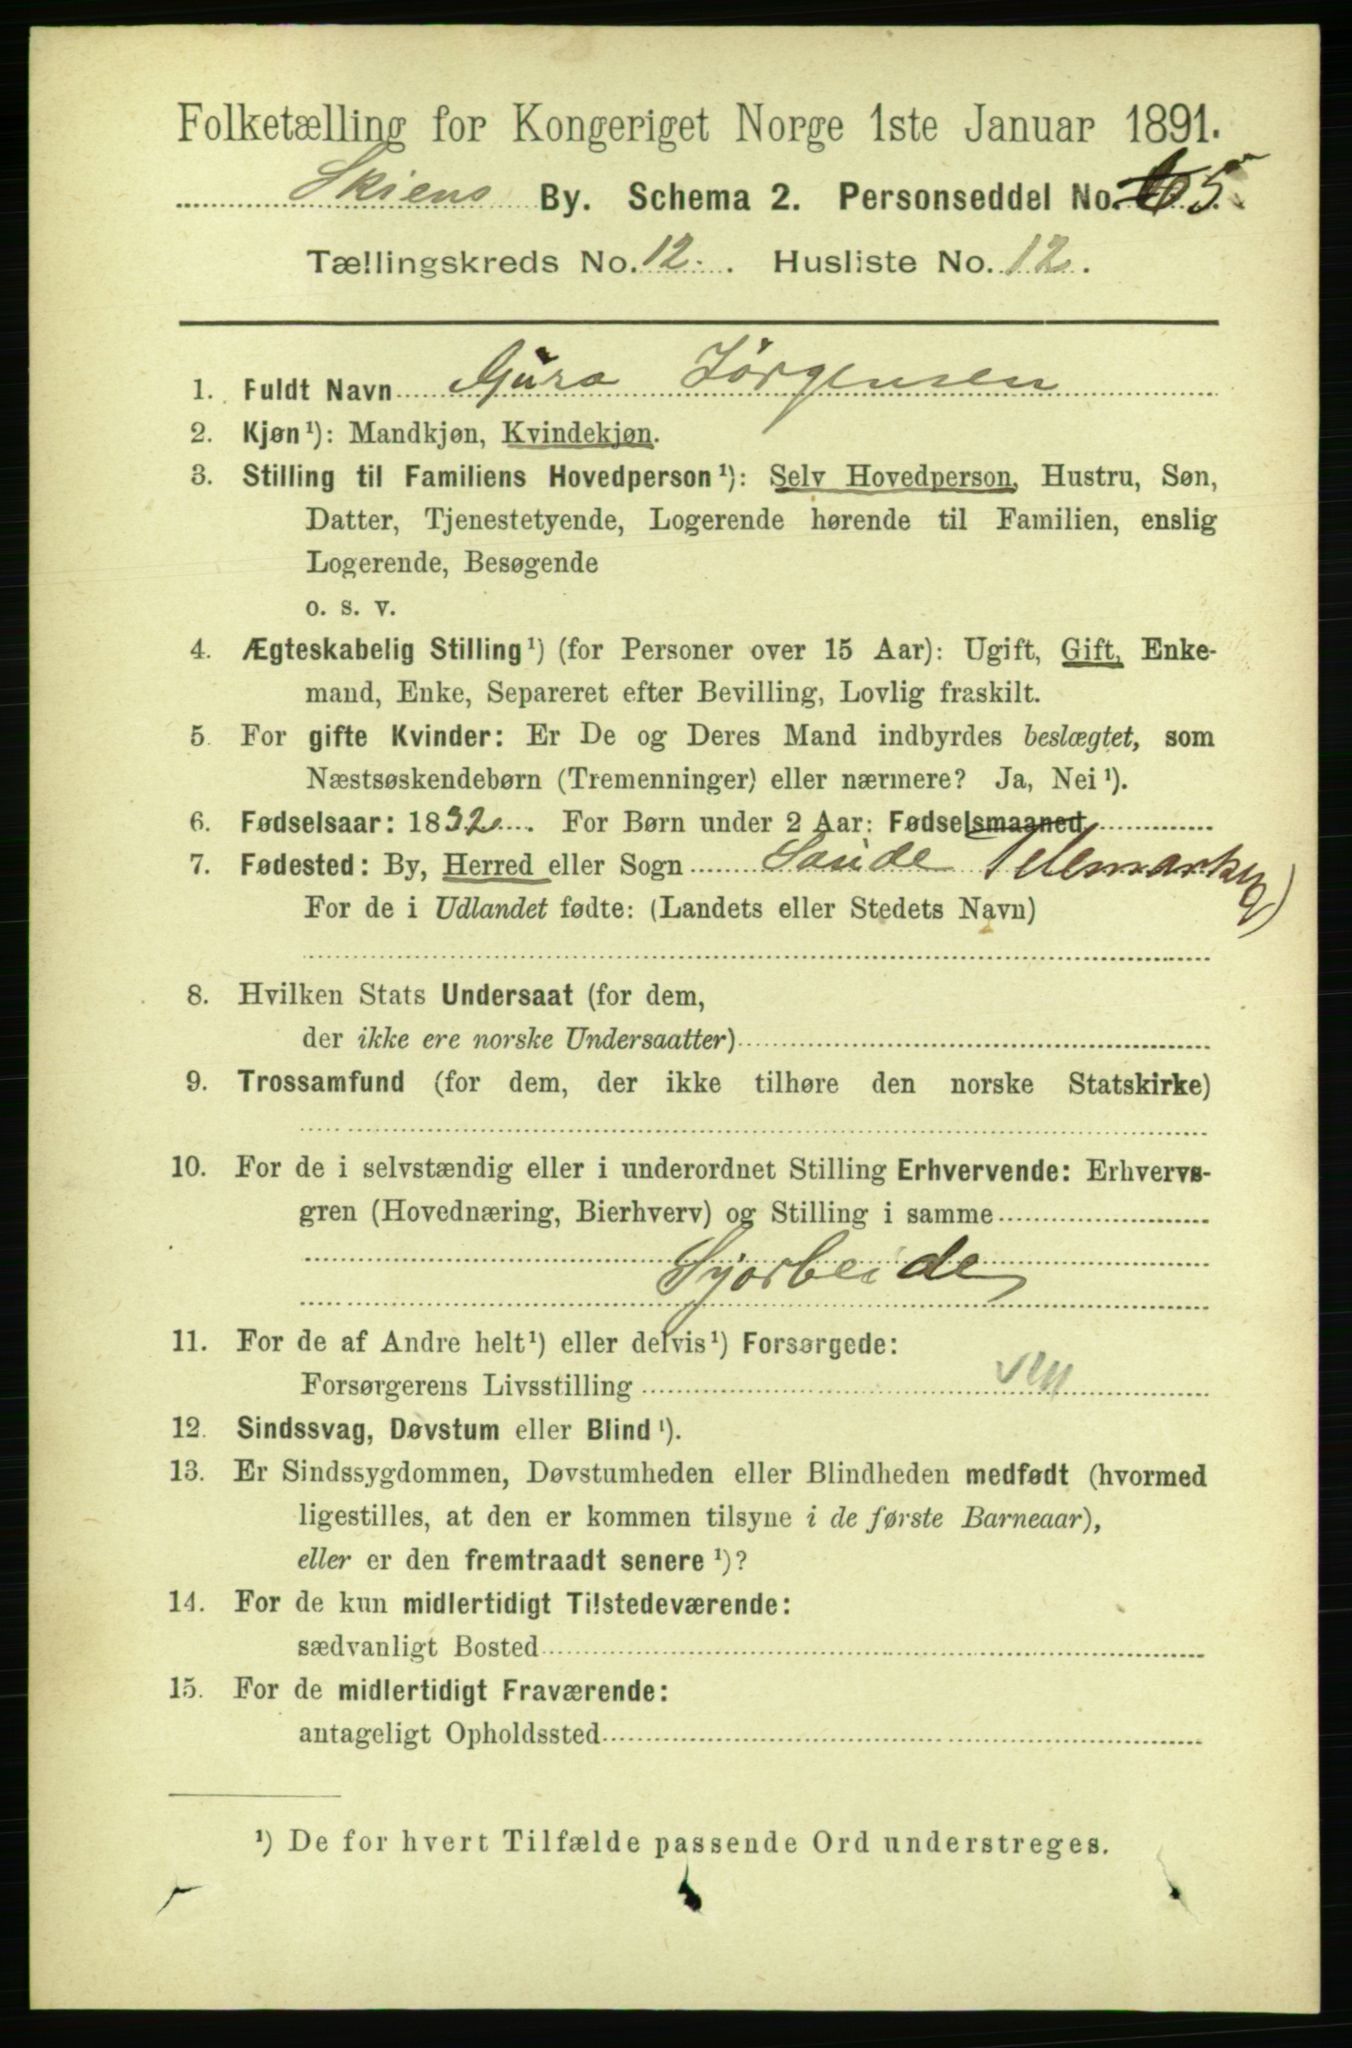 Folketælling for Kongeriget Norge 1ste Januar 1891.
Skiens By. Schema 2. Personseddel No. 5
Tællingskreds No. 12. Husliste No. 12.
1. Fuldt Navn Güro Jörgensen
2. Kjøn¹): Mandkjøn, Kvindekjøn.
3. Stilling til Familiens Hovedperson¹): Selv Hovedperson, Hustru, Søn,
Datter, Tjenestetyende, Logerende hørende til Familien, enslig
Logerende, Besøgende
o. s. v.
4. Ægteskabelig Stilling¹) (for Personer over 15 Aar): Ugift, Gift, Enke-
mand, Enke, Separeret efter Bevilling, Lovlig fraskilt.
5. For gifte Kvinder: Er De og Deres Mand indbyrdes beslægtet, som
Næstsøskendebørn (Tremenninger) eller nærmere? Ja, Nei¹).
6. Fødselsaar: 1832. For Børn under 2 Aar: Fødselsmaaned
7. Fødested: By, Herred eller Sogn Saude Telemarken)
For de i Udlandet fødte: (Landets eller Stedets Navn)
8. Hvilken Stats Undersaat (for dem,
der ikke ere norske Undersaatter)
9. Trossamfund (for dem, der ikke tilhøre den norske Statskirke)
10. For de i selvstændig eller i underordnet Stilling Erhvervende: Erhvervs-
gren (Hovednæring, Bierhverv) og Stilling i samme
Syarbeide
11. For de af Andre helt¹) eller delvis¹) Forsørgede:
Forsørgerens Livsstilling
12. Sindssvag, Døvstum eller Blind¹).
13. Er Sindssygdommen, Døvstumheden eller Blindheden medfødt (hvormed
ligestilles, at den er kommen tilsyne i de første Barneaar),
eller er den fremtraadt senere¹)?
14. For de kun midlertidigt Tilstedeværende:
sædvanligt Bosted
15. For de midlertidigt Fraværende:
antageligt Opholdssted
¹) De for hvert Tilfælde passende Ord understreges.